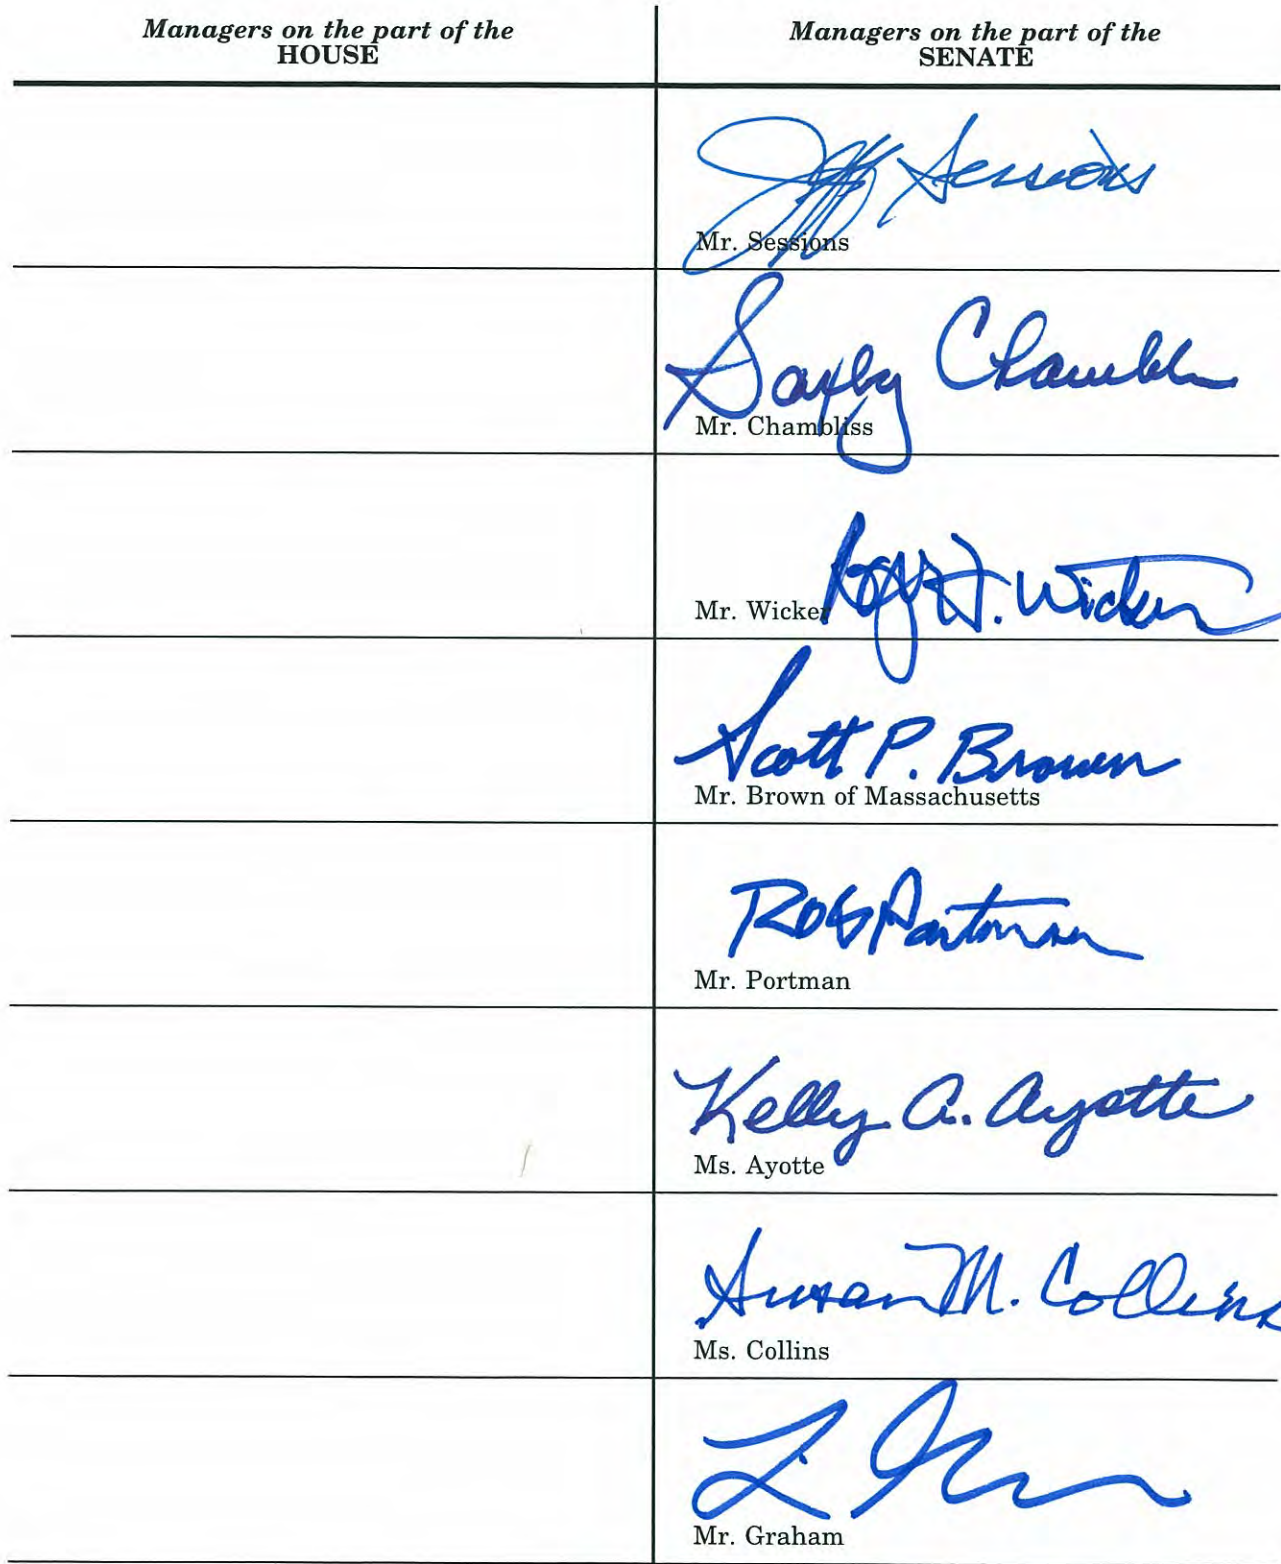 Managers on the part of the
HOUSE
Managers on the part of the
SENATE
Jeff Sessions
Mr. Sessions
Saxby Chambliss
Mr. Chambliss
Roger F. Wicker
Mr. Wicker
Scott P. Brown
Mr. Brown of Massachusetts
Rob Portman
Mr. Portman
Kelly A. Ayotte
Ms. Ayotte
Susan M. Collins
Ms. Collins
Mr. Graham